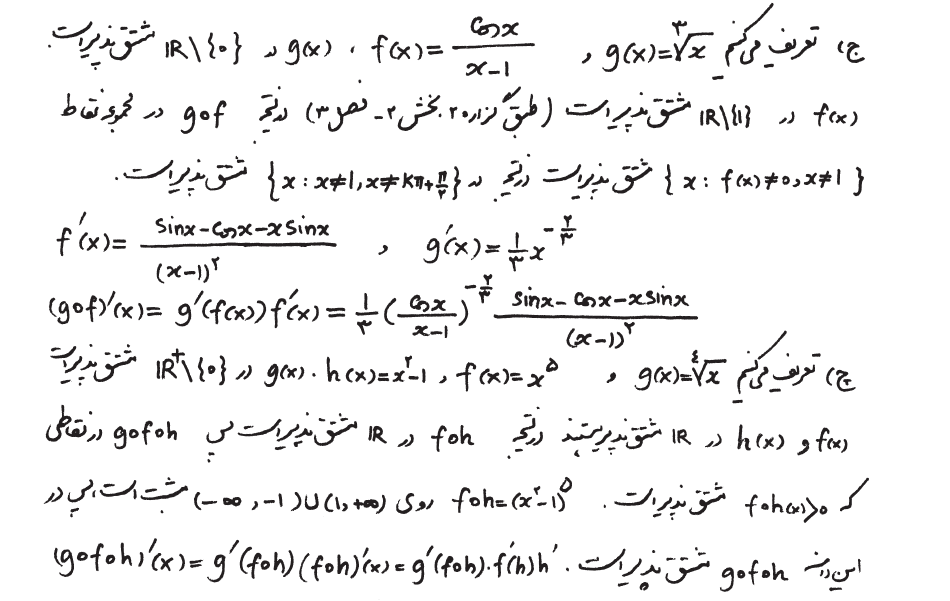 ج) تعریف می‌کنیم g(x)=∛x و f(x)= cosx / x-1 ، g(x) در IR\{۰} مشتق پذیر است.
f(x) در IR\{۱} مشتق پذیر است (طبق گزاره ۲۰ بخش ۲ - فصل ۳) در نتیجه gof در مجموعه نقاط
{x : f(x)≠۰, x≠1} مشتق پذیر است در نتیجه در {x : x≠1, x≠kπ+π/۲} مشتق پذیر است.
f′(x)= sinx-cosx-xsinx / (x-1)^۲ , g′(x)=۱/۳ x^-۲/۳
(gof)′(x)= g′(f(x))f′(x)= ۱/۳ (cosx / x-1)^-۲/۳ sinx-cosx-xsinx / (x-1)^۲
ج) تعریف می‌کنیم g(x)=∜x و f(x)=x^۵ , h(x)=x^۲-1 . g(x) در IR⁺\{۰} مشتق پذیر است
f(x) و h(x) در IR مشتق پذیر هستند در نتیجه foh در IR مشتق پذیر است پس gofoh در نقاطی
که foh(x)>۰ مشتق پذیر است. foh=(x^۲-1)^۵ روی (-∞,-1)∪(1,+∞) مثبت است، پس در
این دامنه gofoh مشتق پذیر است. (gofoh)′(x)= g′(foh)(foh)′(x)= g′(foh).f′(h)h′